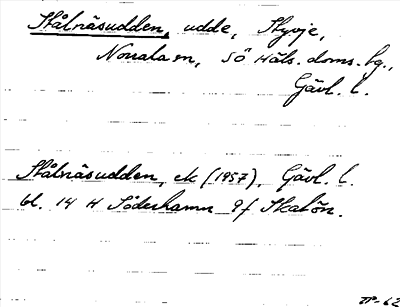 Stålnäsudden, udde, Styvje,
Norrala sn, Sö Häls. doms. lg.,
Gävl. l.
Stålnäsudden, ek (1957), Gävl. l.
bl. 14 H Söderhamn 9f Skatön.
-62